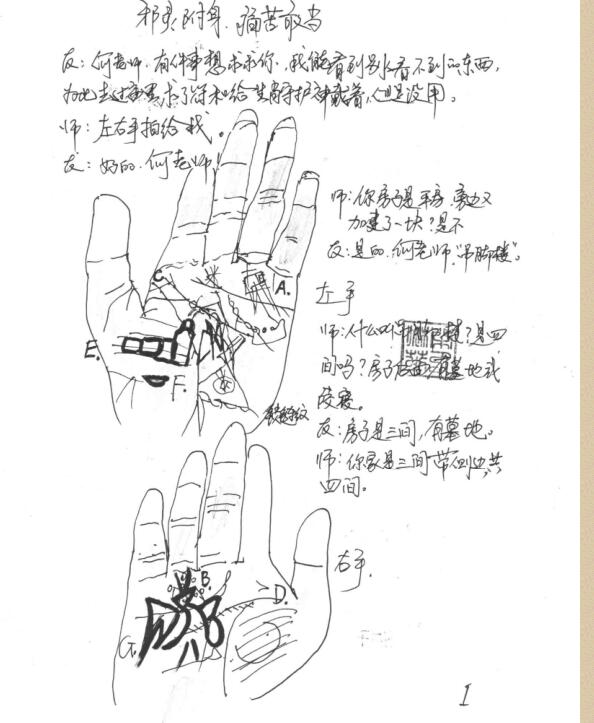 邪灵附身、痛苦敢当
友：何老师，有件事想求求你，我能看到别人看不到的东西，
为此去过 求了符和给生肖守护神戴着，但是没用。
师：左右手拍给我。
友：好的，何老师！
师：你房子是平房，旁边又
加建了一块？是不
友：是的，何老师，“吊脚楼”。
左手
师：什么叫吊脚楼？是四
间吗？房子后面有墓地或
陵寝。
友：房子是三间，有墓地。
师：你家是三间带侧边共
四间。
C.
A.
E.
F.
右手
B.
D.
G
1